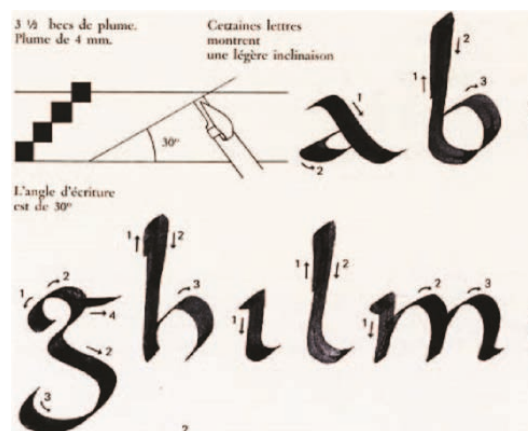 3 ½ becs de plume.
Plume de 4 mm.
Certaines lettres
montrent
une légère inclinaison
30°
1 2
a
1 2 3
b
L'angle d'écriture
est de 30°
1 2 4 2 3
g
1 2 3
h
1
ı
1 2
l
1 2 3
m
2